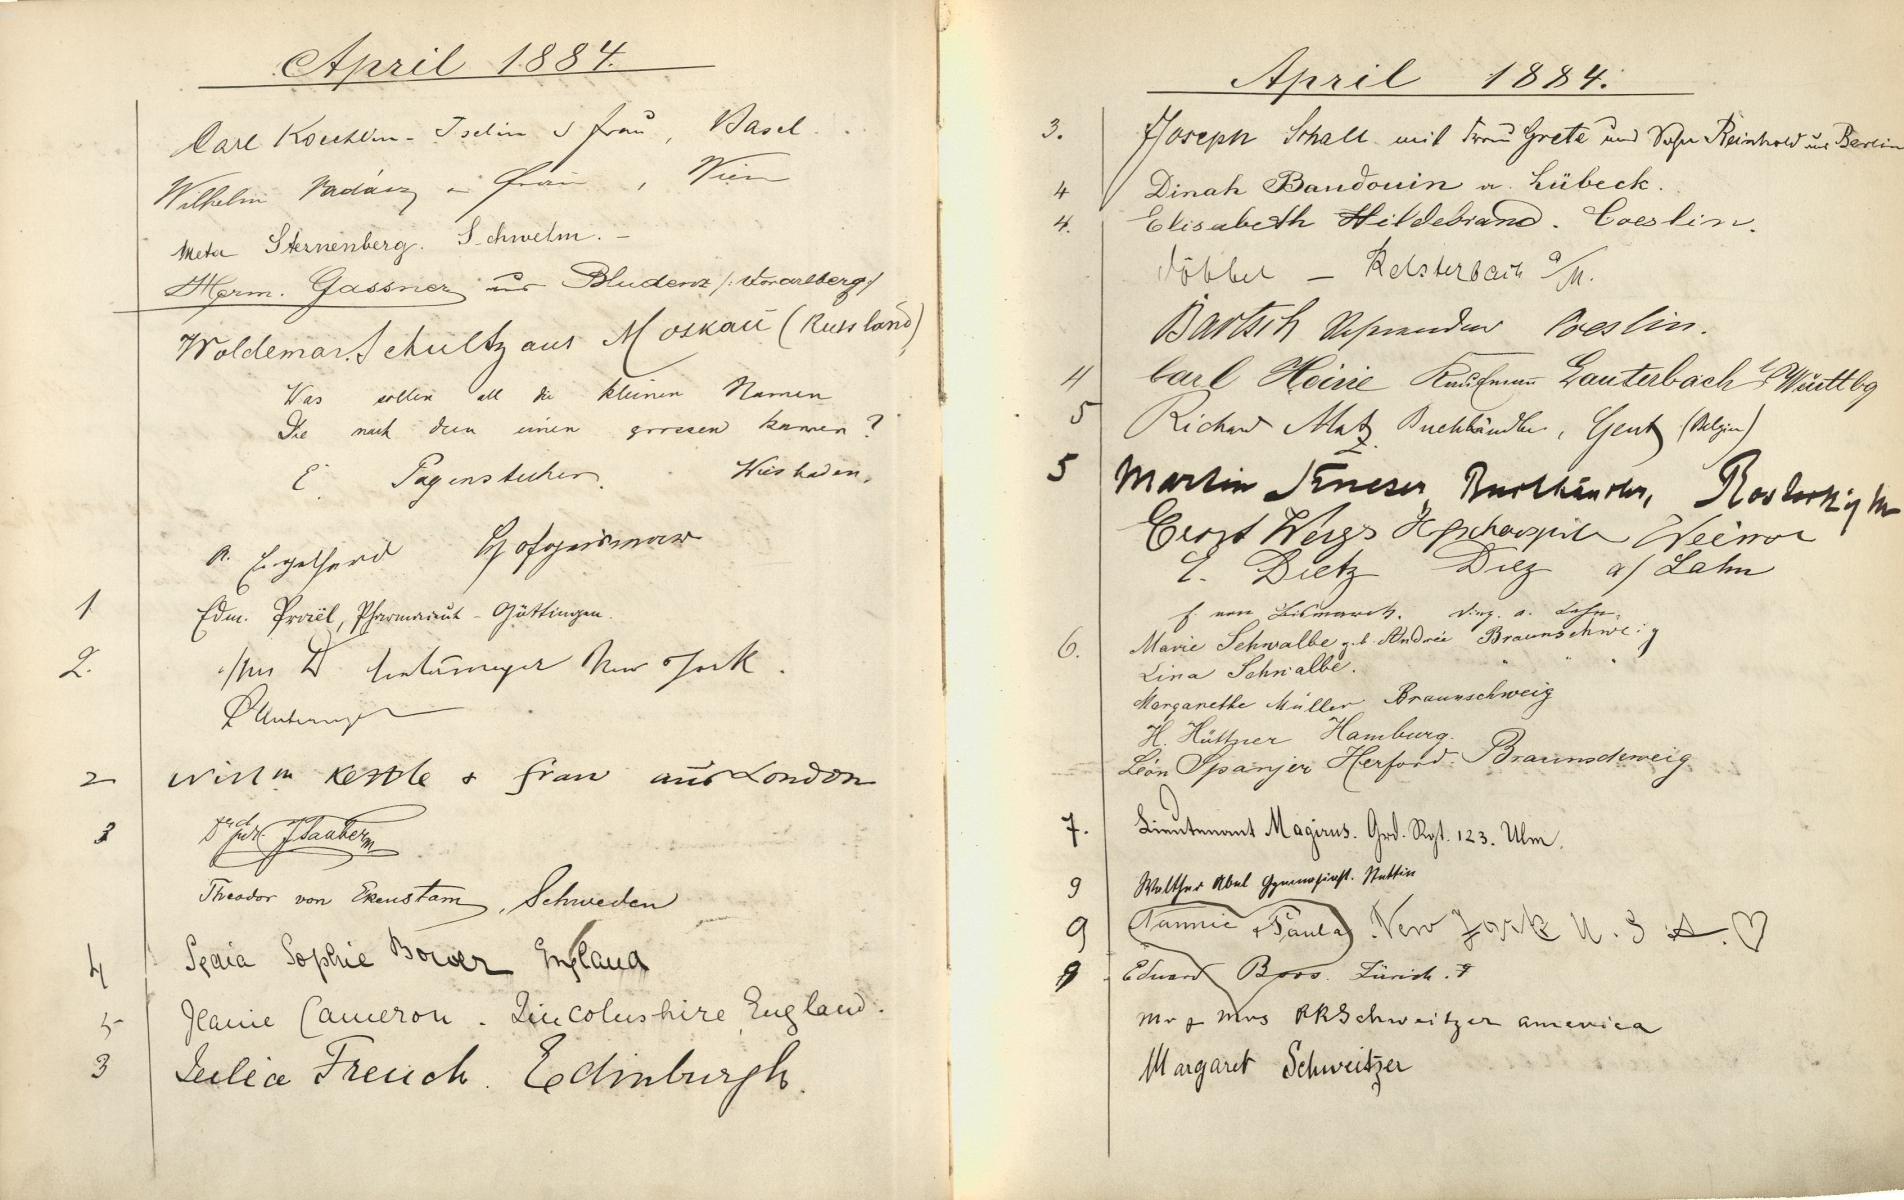 April 1884.
Carl Koechlin-Iselin & Frau, Basel.
Wilhelm Vadász u. Frau, Wien
Meta Sternenberg. Schwelm. –
Herm. Gassner aus Bludenz /: Vorarlberg :/
Woldemar Schultz aus Moskau (Russland)
Was sollen all die kleinen Namen
Die nach dem einen grossen kamen?
E. Pagenstecher. Wiesbaden.
R. Engelhard Hofgeismar
1 Edm. Pharmaceut - Göttingen.
2. Mrs D New York.
2 Willm Kettle & Frau aus London
3 Dr.
Theodor von Ekenstam, Schweden
4 Sophie Bower England
5 Jeanie Cameron. Lincolnshire England.
3 Julia French. Edinburgh.
April 1884.
3. Joseph Schall mit Frau Grete und Sohn Reinhold aus Berlin
4 Dinah Baudouin a. Lübeck.
4. Elisabeth Hildebrand. Coeslin.
Döbber – Kelsterbach a/M.
Bartsch Referendar Coeslin.
4 Carl Heine Kaufmann Lauterbach Württbg
5 Richard Matz Buchhändler, Gent (Belgien)
5 Martin Buchhändler, Rostock i/M
Ernst Hofschauspieler Weimar
E. Dietz Diez a/ Lahn
F. von Bismarck. Diez. a. Lahn.
6. Marie Schwalbe geb. Andrée Braunschweig
Lina Schwalbe. " " "
Margarethe Müller Braunschweig
H. Hüttner Hamburg.
Léon Spanjer Herford. Braunschweig
7. Lieutenant Magirus. Grd. Rgt. 123. Ulm.
9 Walther Abel Gymnasiast. Stettin
9 Nannie & Paula New York U. S. A. ♡
9 Eduard Boos. Zürich. 9
Mr & Mrs RR Schweitzer america
Margaret Schweitzer